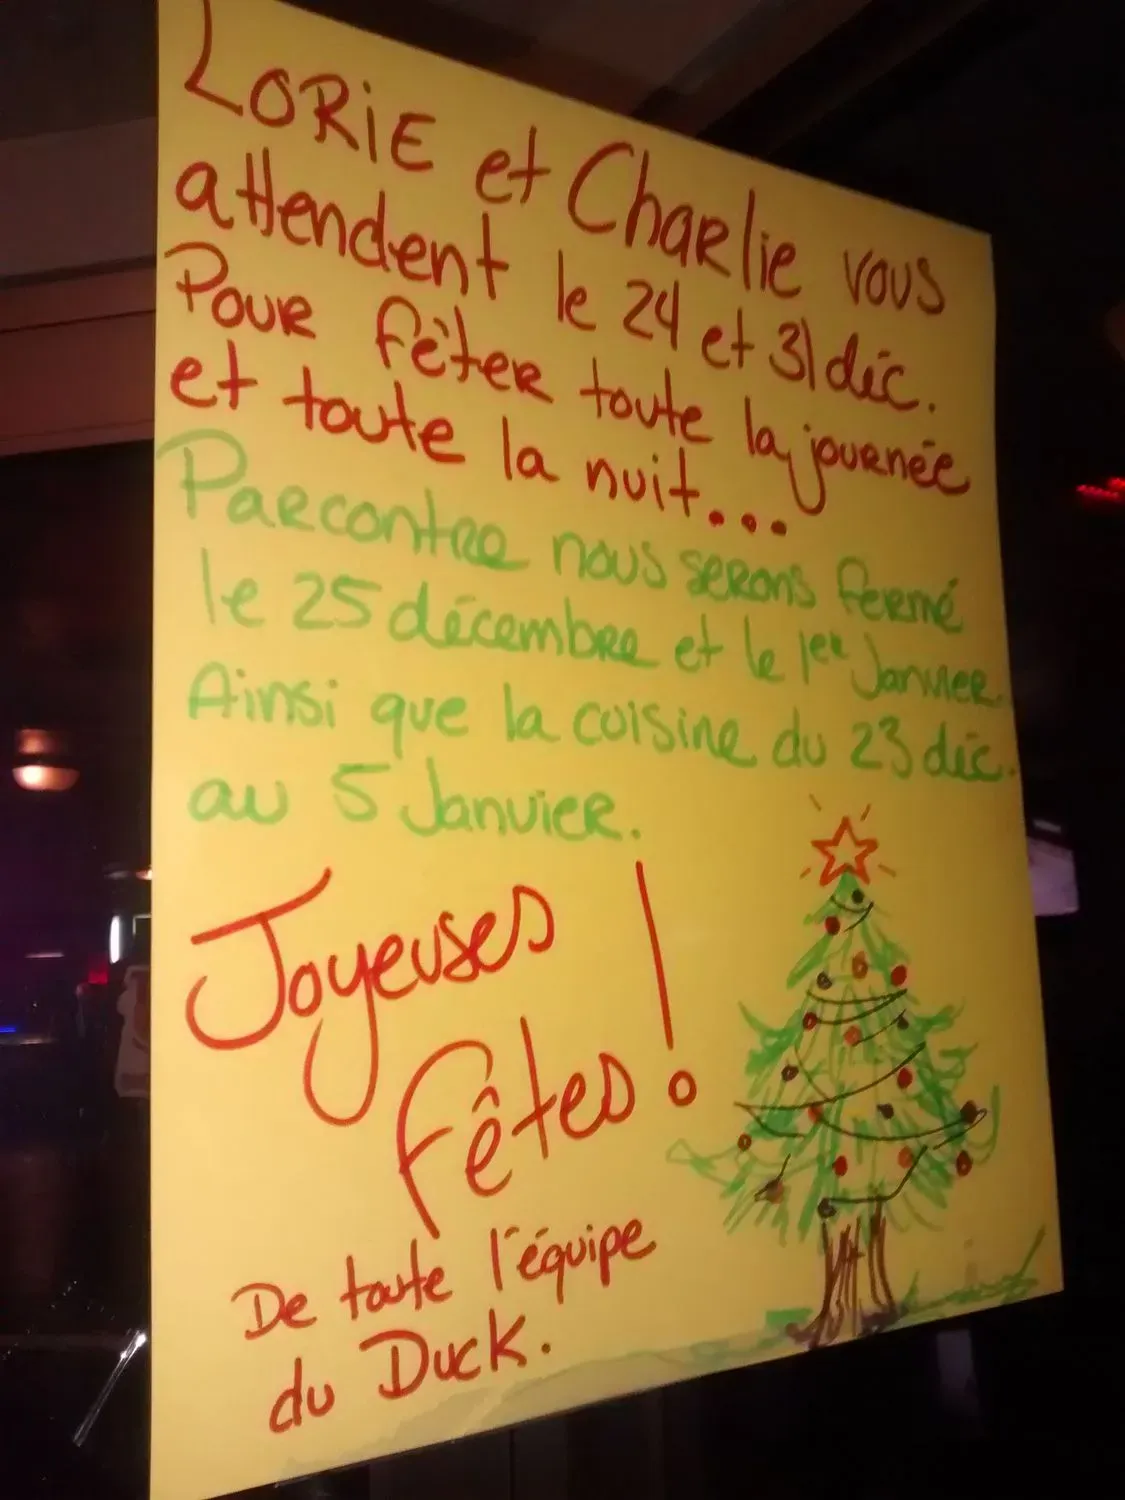 LORiE et Charlie vous
attendent le 24 et 31 déc.
Pour fêter toute la journée
et toute la nuit...
Parcontre nous serons fermé
le 25 décembre et le 1er Janvier.
Ainsi que la cuisine du 23 déc.
au 5 Janvier.
Joyeuses
Fêtes !
De toute l'équipe
du Duck.